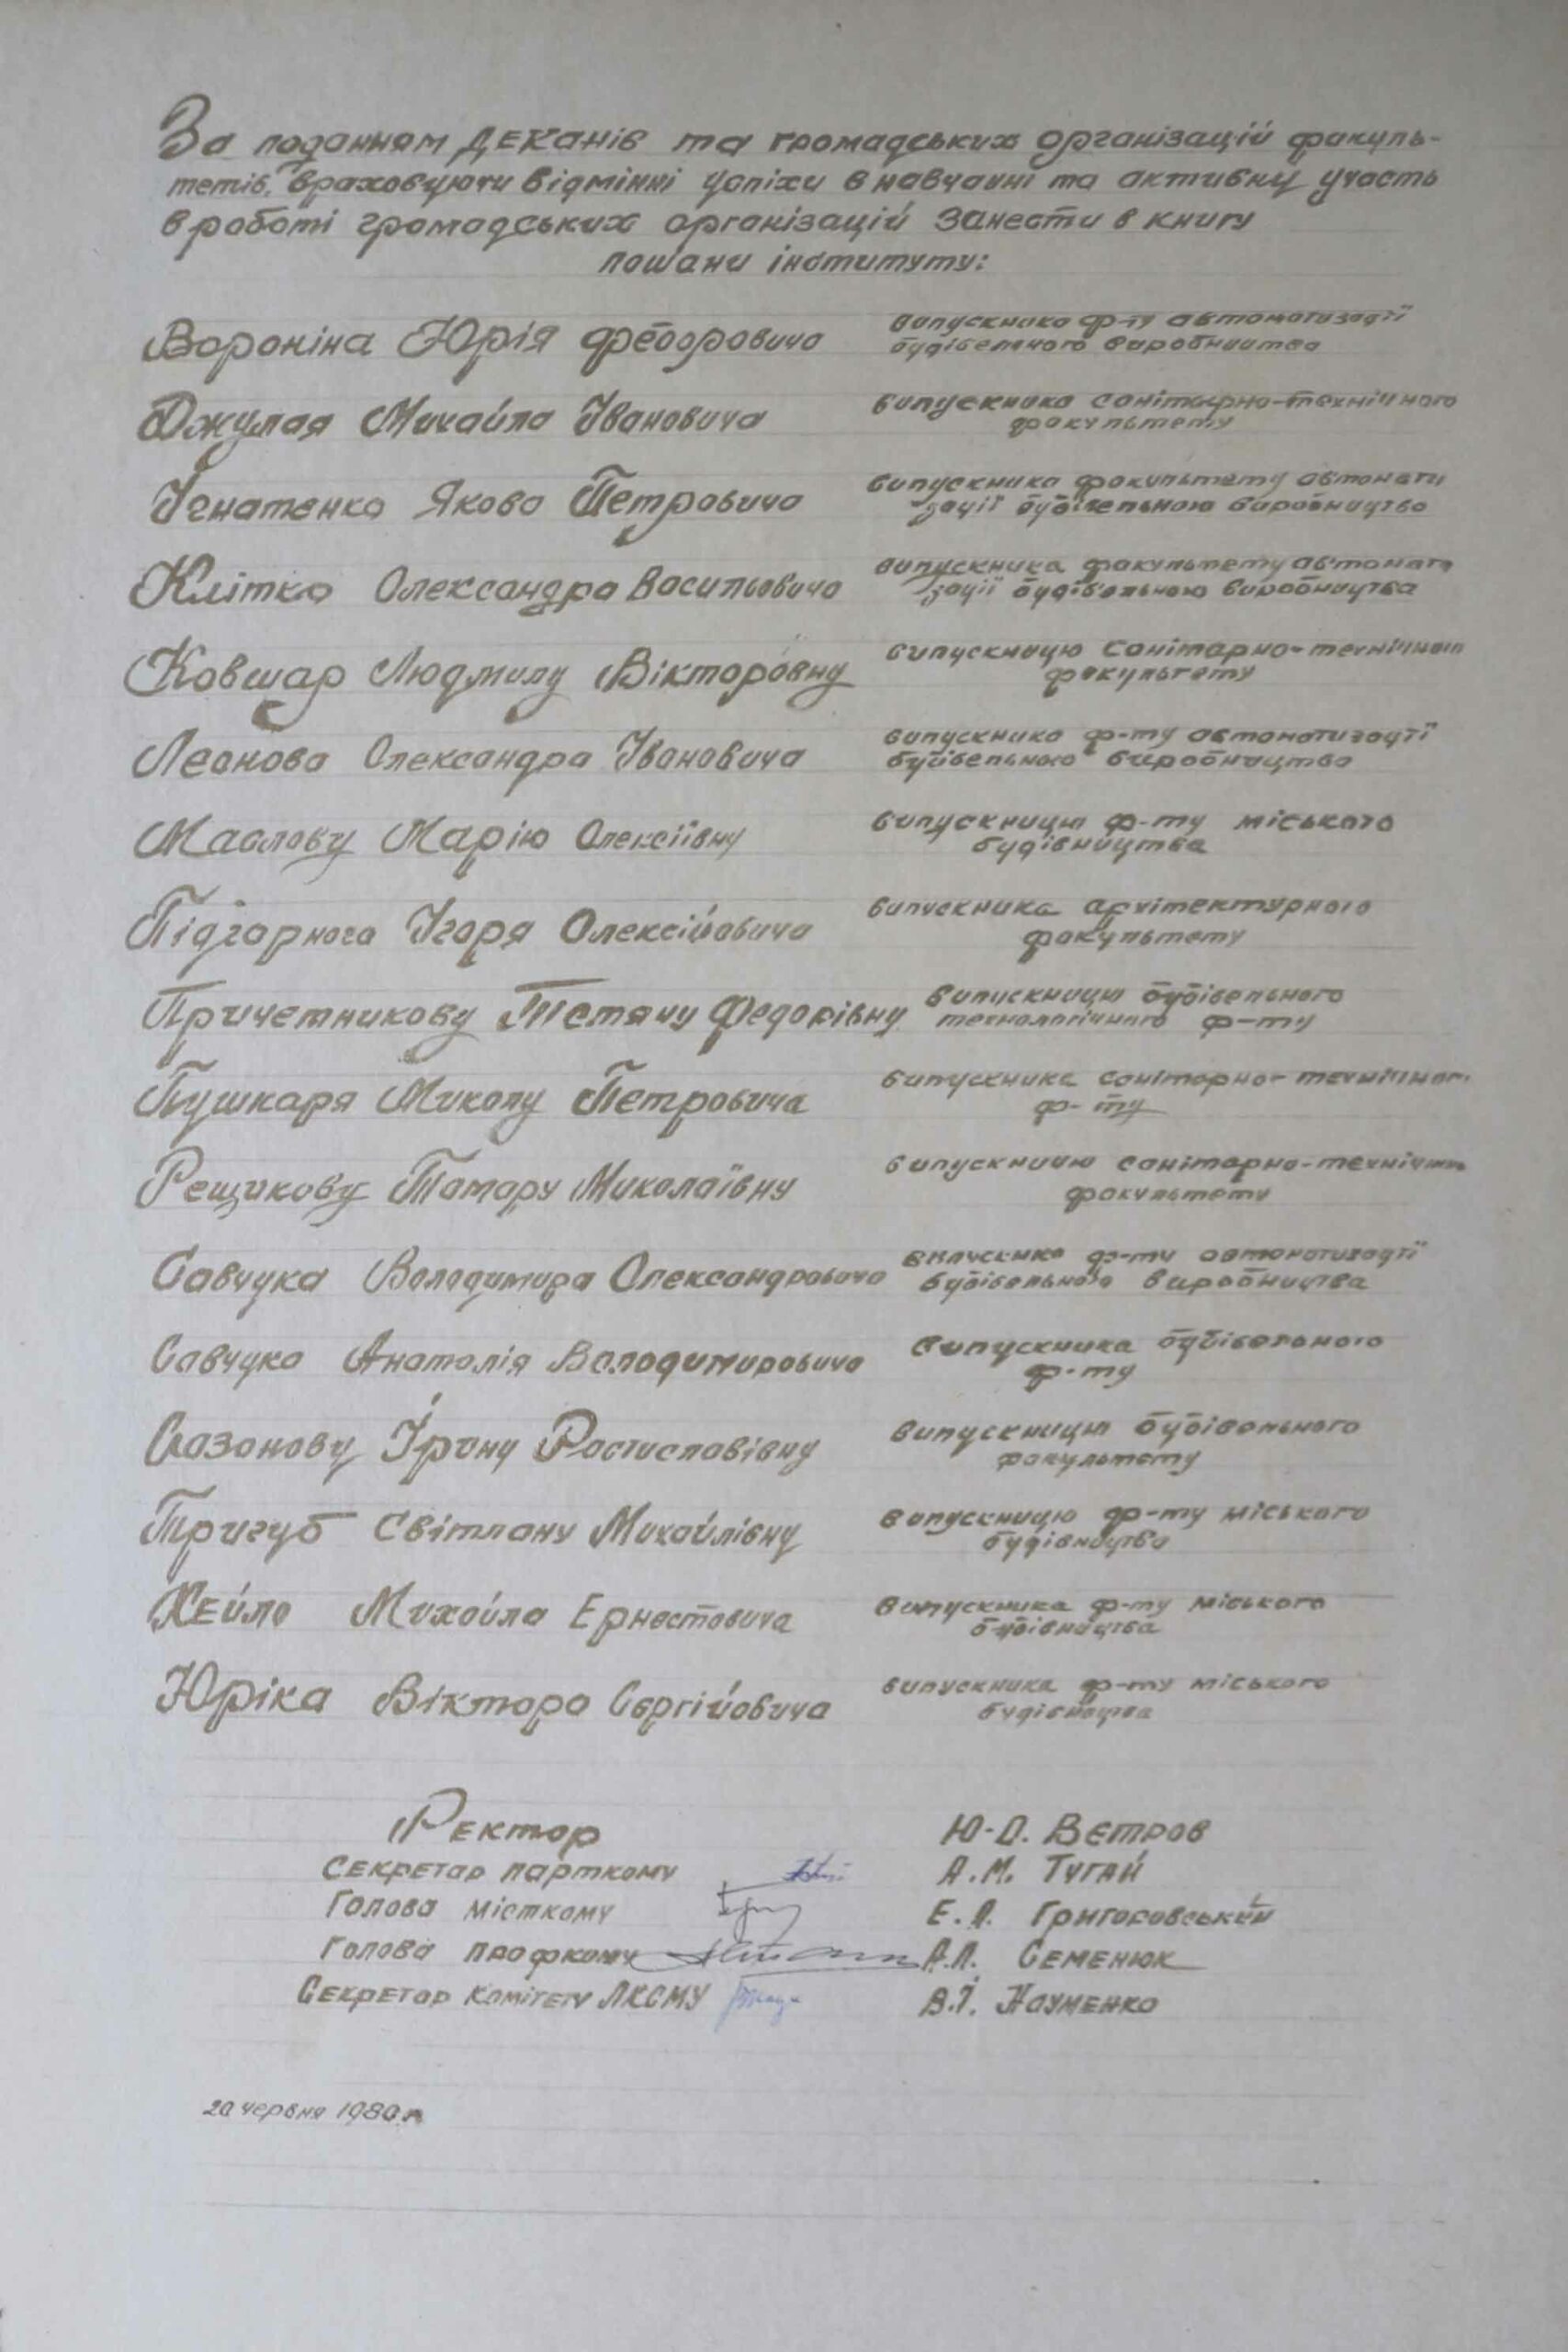 За поданням деканів та громадських організацій факуль-
тетів, враховуючи відмінні успіхи в навчанні та активну участь
в роботі громадських організацій занести в книгу
пошани інституту:
Вороніна Юрія Федоровича випускника ф-ту автоматизації
будівельного виробництва
Джулая Михайла Івановича випускника санітарно-технічного
факультету
Ігнатенко Якова Петровича випускника факультету автомати
зації будівельного виробництва
Клітка Олександра Васильовича випускника факультету автомати
зації будівельного виробництва
Ковшар Людмилу Вікторовну випускницю санітарно-технічного
факультету
Леонова Олександра Івановича випускника ф-ту автоматизації
будівельного виробництва
Маслову Марію Олексіївну випускницю ф-ту міського
будівництва
Підгорного Ігоря Олексійовича випускника архітектурного
факультету
Причетникову Тетяну Федорівну випускницю будівельного
технологічного ф-ту
Пушкаря Миколу Петровича випускника санітарно-технічного
ф-ту
Рещикову Тамару Миколаївну випускницю санітарно-технічного
факультету
Савчука Володимира Олександровича випускника ф-ту автоматизації
будівельного виробництва
Савчука Анатолія Володимировича випускника будівельного
ф-ту
Сазонову Ірину Ростиславівну випускницю будівельного
факультету
Тригуб Світлану Михайлівну випускницю ф-ту міського
будівництва
Хейло Михайла Ернестовича випускника ф-ту міського
будівництва
Юріка Віктора Сергійовича випускника ф-ту міського
будівництва
Ректор Ю.О. Вєтров
Секретар парткому А.М. Тугай
Голова місткому Е.Л. Григоровський
Голова профкому А.П. Семенюк
Секретар комітету ЛКСМУ В.І. Науменко
20 червня 1980 р